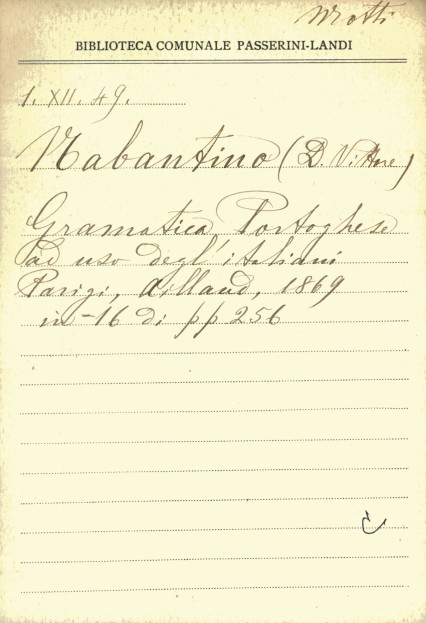 Motti
BIBLIOTECA COMUNALE PASSERINI-LANDI
1. XII. 49.
Nabantino (D. Vittore)
Gramatica Portoghese
ad uso degl' italiani
Parigi, Aillaud, 1869
in-16 di pp 256
C